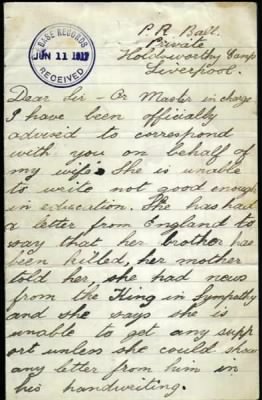 P. R. Ball.
Private
Holdsworthy Camp
Liverpool.
BASE RECORDS
JUN 11 1917
RECEIVED
Dear Sir - Or Master in charge
I have been officially
advised to correspond
with you on behalf of
my wife. She is unable
to write not good enough
in education. She has had
a letter from England to
say that her brother has
been killed, her mother
told her, she had news
from the King in Sympathy
and she says she is
unable to get any supp
ort unless she could show
any letter from him in
his handwriting.